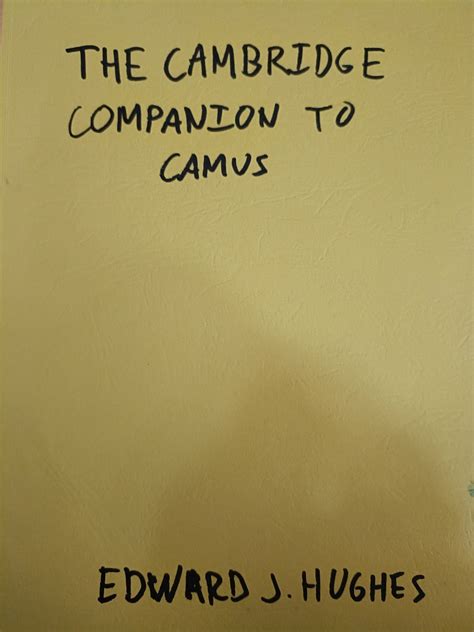 THE CAMBRIDGE
COMPANION TO
CAMUS
EDWARD J. HUGHES